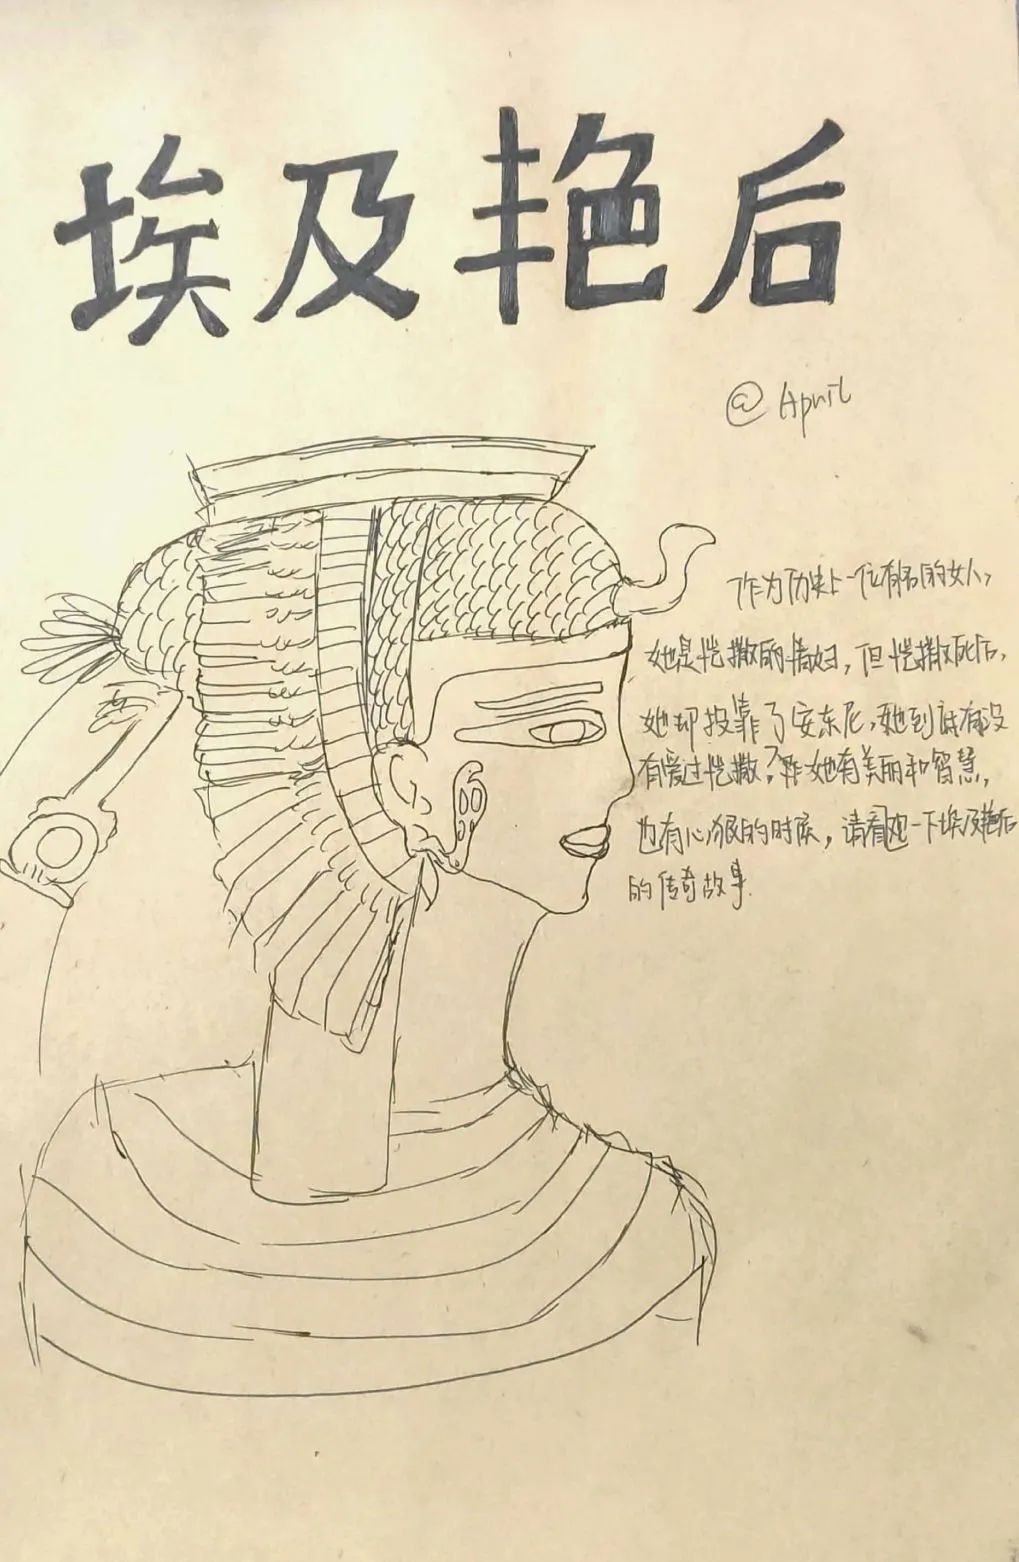 埃及艳后
@April
作为历史上一位有名的女人,
她是恺撒的情妇,但恺撒死后,
她却投靠了安东尼,她到底有没
有爱过恺撒?她有美丽和智慧,
也有心狠的时候,请看一下埃及艳后
的传奇故事.